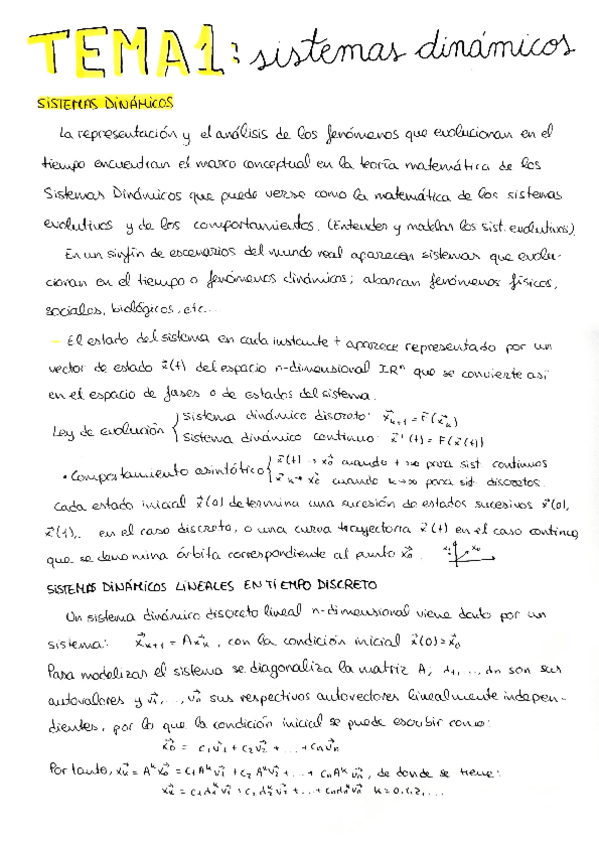 TEMA1: sistemas dinámicos
SISTEMAS DINÁMICOS
La representación y el análisis de los fenómenos que evolucionan en el
tiempo encuentran el marco conceptual en la teoría matemática de los
Sistemas Dinámicos que puede verse como la matemática de los sistemas
evolutivos y de los comportamientos. (Entender y modelar los sist. evolutivos).
En un sinfín de escenarios del mundo real aparecen sistemas que evolu-
cionan en el tiempo o fenómenos dinámicos; abarcan fenómenos físicos,
sociales, biológicos, etc...
- El estado del sistema en cada instante t aparece representado por un
vector de estado x⃗(t) del espacio n-dimensional IRⁿ que se convierte así
en el espacio de fases o de estados del sistema.
Ley de evolución { sistema dinámico discreto: x⃗ₖ₊₁ = F(x⃗ₖ)
sistema dinámico continuo: x⃗'(t) = F(x⃗(t))
• Comportamiento asintótico { x⃗(t) → x⃗0 cuando t→∞ para sist continuos
x⃗ₖ → x⃗0 cuando k→∞ para sist discretos.
Cada estado inicial x⃗(0) determina una sucesión de estados sucesivos x⃗(0),
x⃗(1),.. en el caso discreto, o una curva trayectoria x⃗(t) en el caso continuo,
que se denomina órbita correspondiente al punto x⃗0.
SISTEMAS DINÁMICOS LINEALES EN TIEMPO DISCRETO
Un sistema dinámico discreto lineal n-dimensional viene dado por un
sistema: x⃗ₖ₊₁ = Ax⃗ₖ, con la condición inicial x⃗(0)=x⃗0
Para modelizar el sistema se diagonaliza la matriz A; λ1,...,λn son sus
autovalores y v⃗1,...,v⃗n sus respectivos autovectores linealmente indepen-
dientes, por lo que la condición inicial se puede escribir como:
x⃗0 = c1v⃗1 + c2v⃗2 + ... + cnv⃗n
Por tanto, x⃗ₖ = Aᵏx⃗0 = c1Aᵏv⃗1 + c2Aᵏv⃗2 + ... + cnAᵏv⃗n, de donde se tiene:
x⃗ₖ = c1λ1ᵏv⃗1 + c2λ2ᵏv⃗2 + ... + cnλnᵏv⃗n k=0,1,2,...